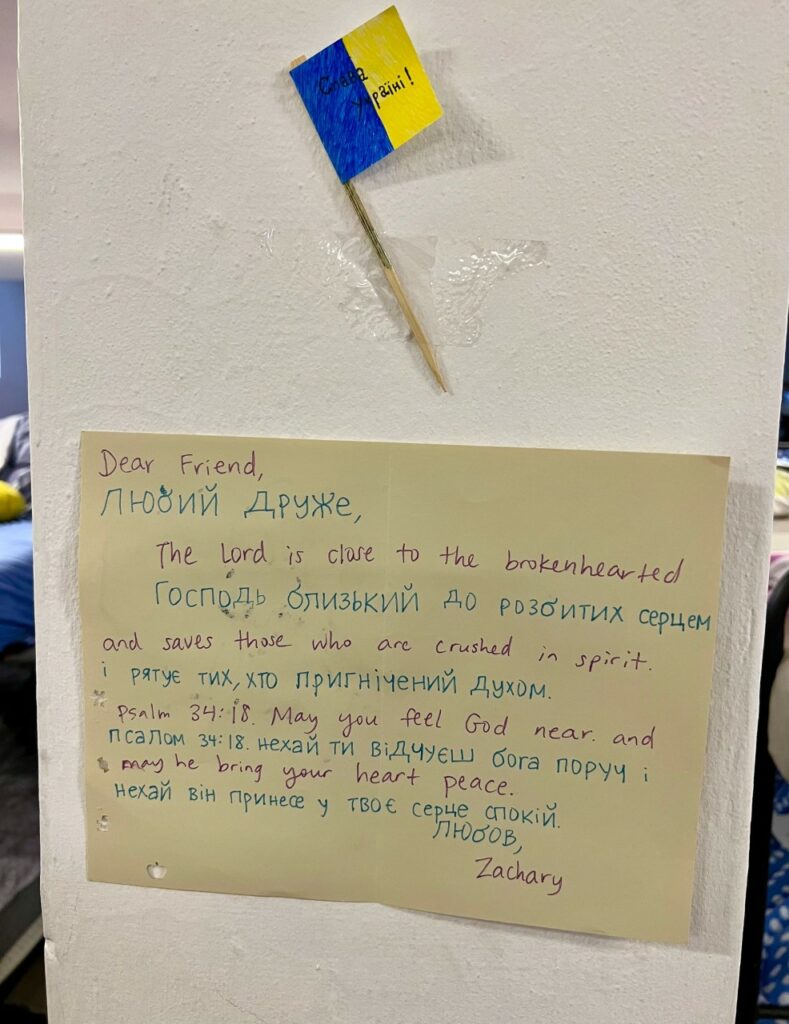 Слава
Україні!
Dear Friend,
Любий Друже,
The Lord is close to the brokenhearted
Господь близький до розбитих серцем
and saves those who are crushed in spirit.
і рятує тих, хто пригнічений духом.
Psalm 34:18. May you feel God near. and
псалом 34:18. нехай ти відчуєш бога поруч і
may he bring your heart peace.
нехай він принесе у твоє серце спокій.
Любов,
Zachary